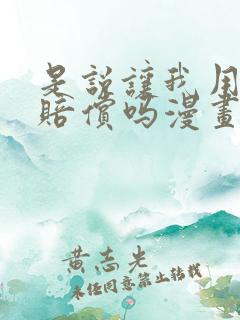 是说让我用
赔偿吗漫画
黄志光
未经同意禁止转载